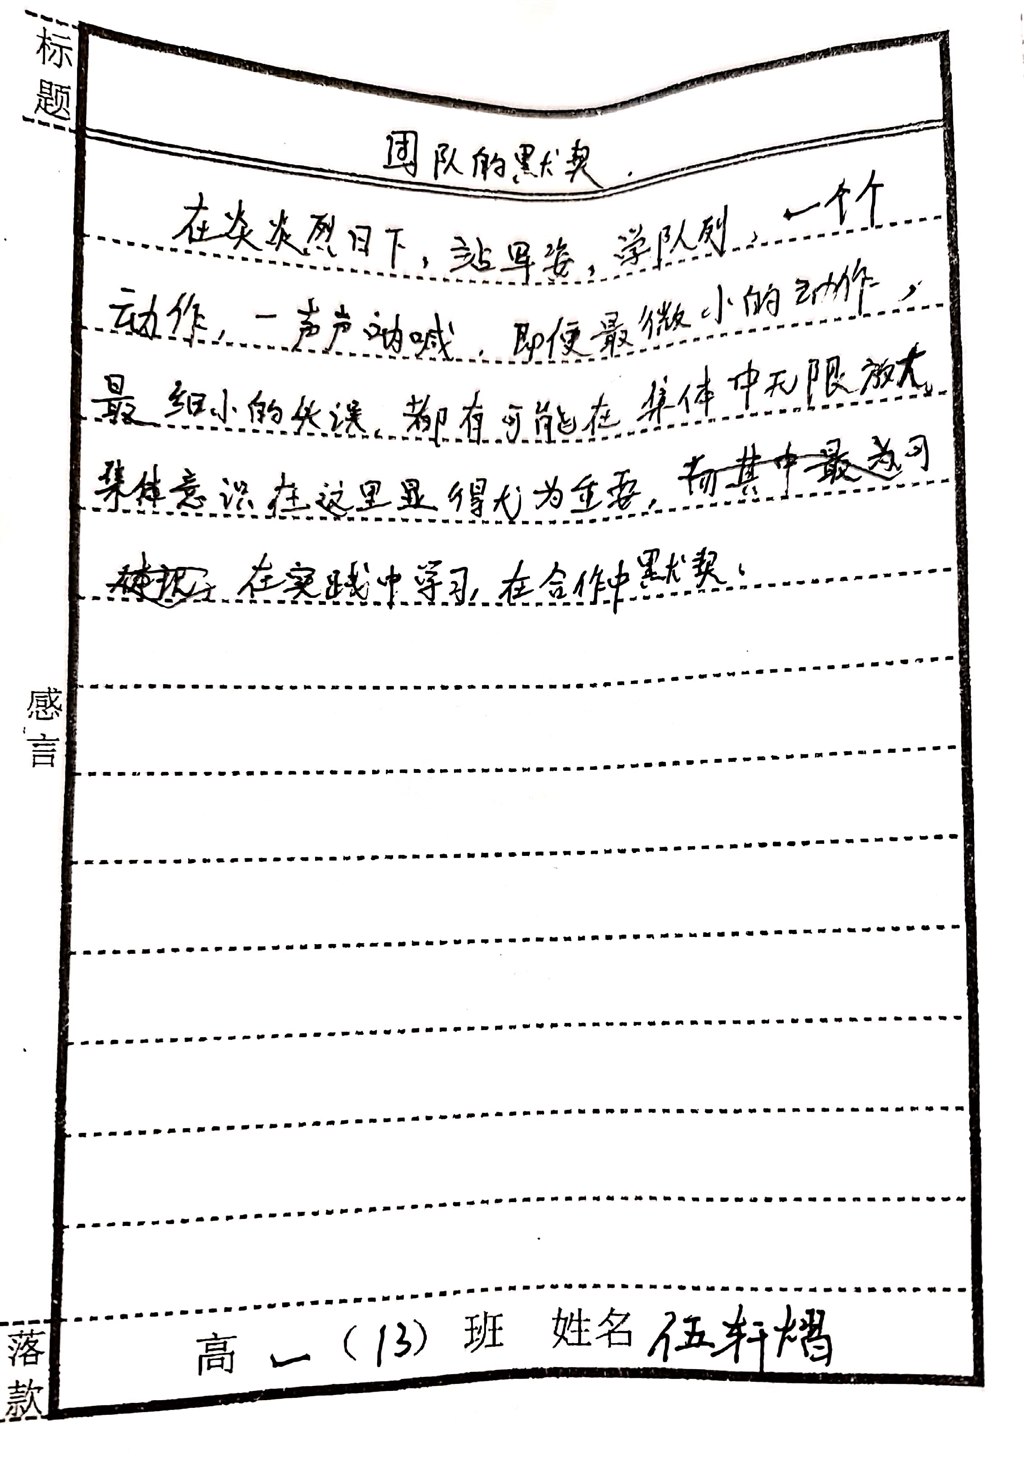 标题
团队的默契.
在炎炎烈日下，站军姿，学队列，一个个
动作，一声声呐喊，即便最微小的动作，
最细小的失误，都有可能在集体中无限放大。
集体意识在这里显得尤为重要，而其中最为可
体现于在实践中学习，在合作中默契。
感言
落款
高一（13）班 姓名 伍轩熠